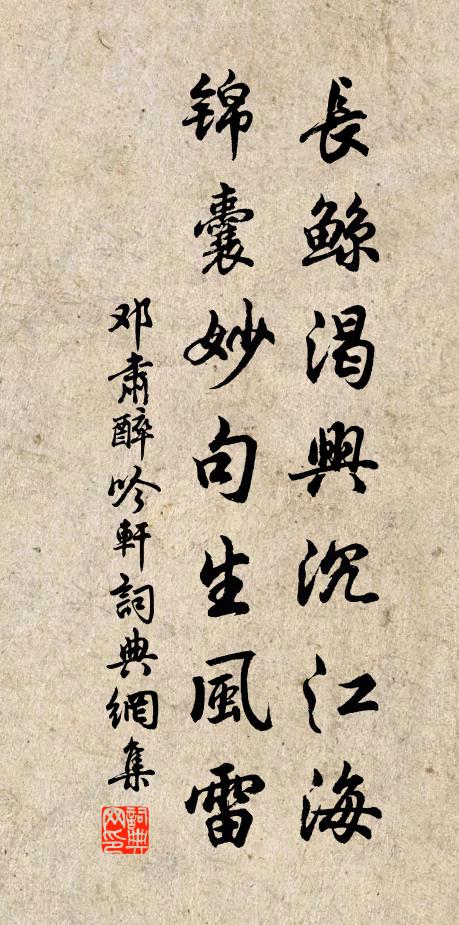 長鲸渴興沉江海
锦囊妙句生風雷
邓肅醉吟軒詞典網集
詞典网印